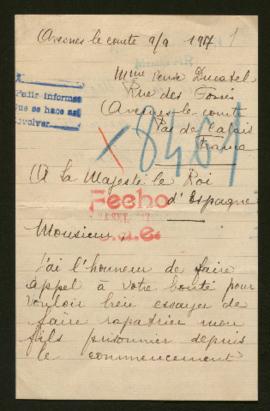 Avesnes le comte 9/9 1917 1
Mme Veuve Ducatel
Rue des Fossés
Avesnes-le-comte
Pas de Calais
France
Pedir informes
que se hace así
x 8481
A Sa Majesté le Roi
d'Espagne
Fecho
Monsieur,
J'ai l'honneur de faire
appel à votre bonté pour
vouloir bien essayer de
faire rapatrier mon
fils prisonnier depuis
le commencement